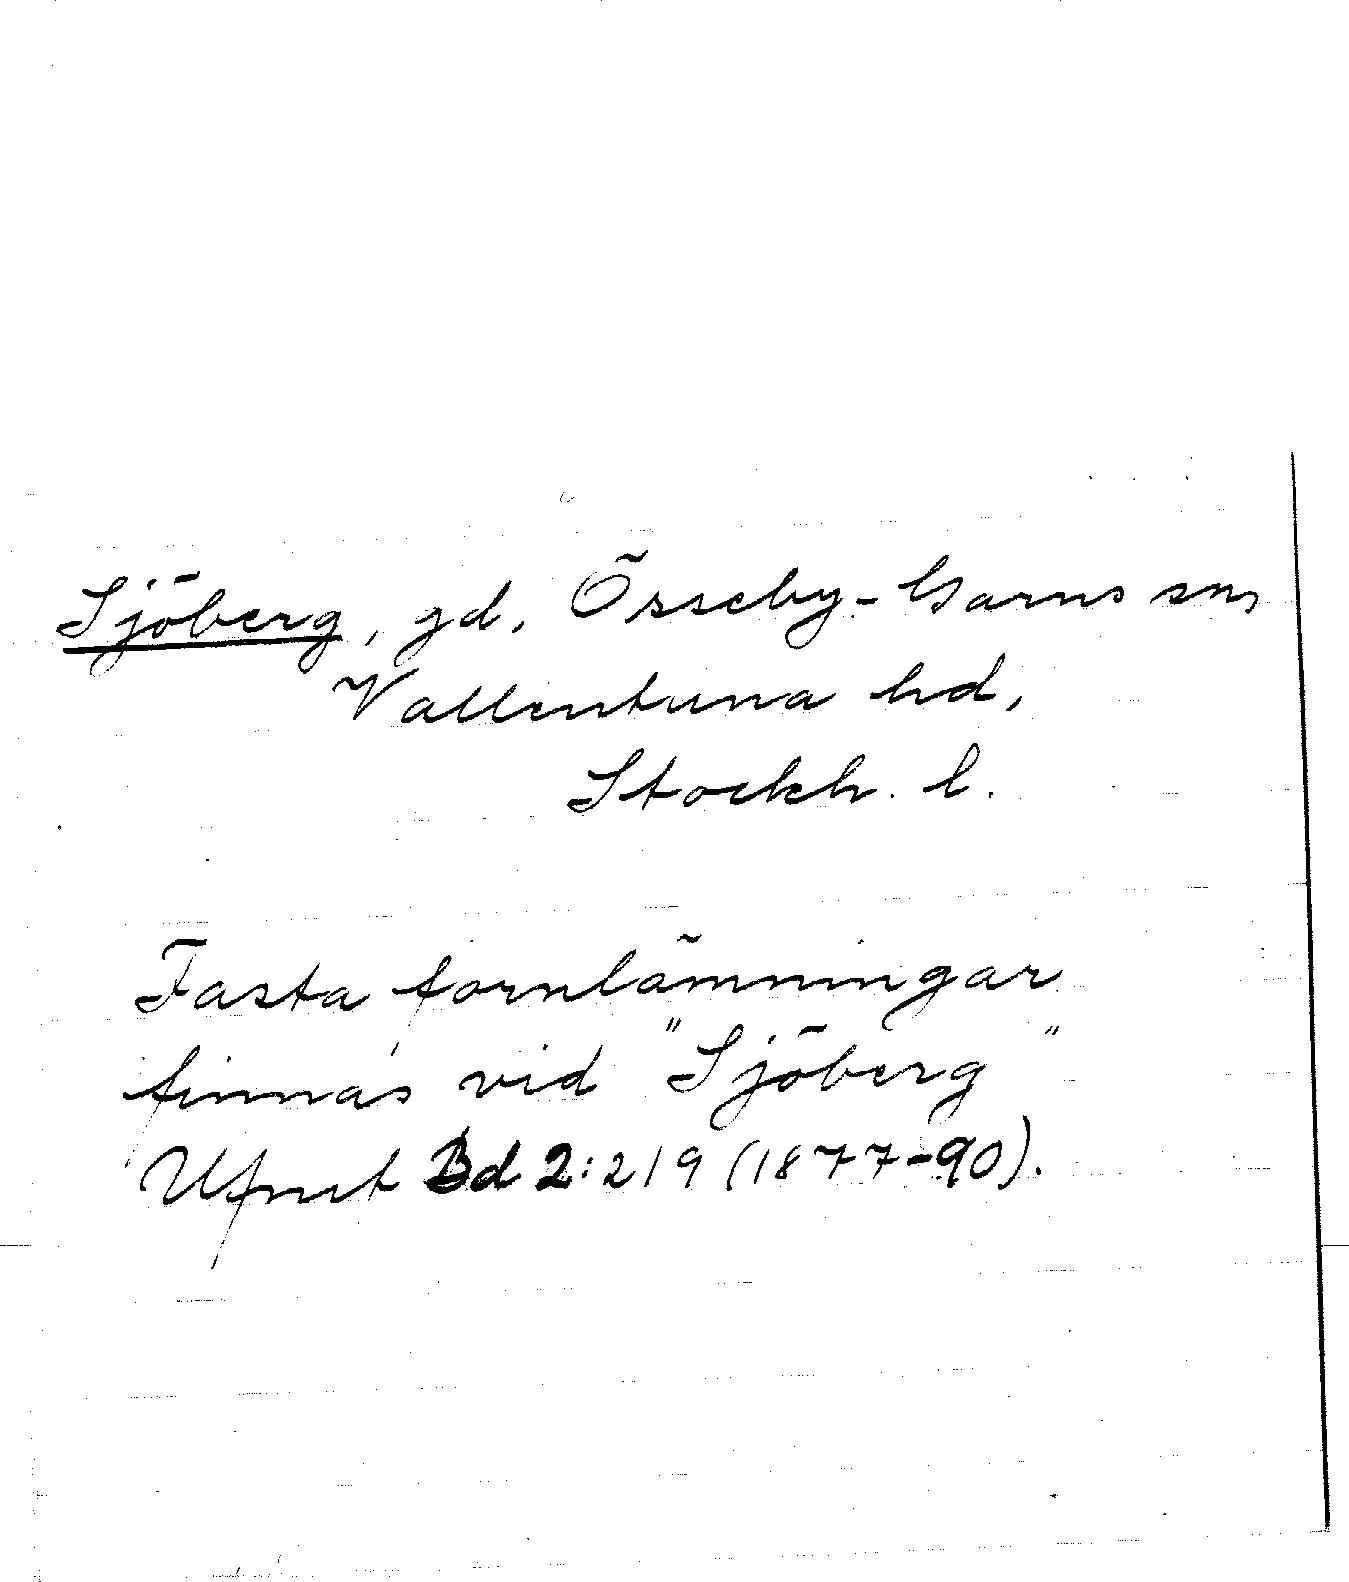 Sjöberg, gd, Össeby-Garns sn,
Vallentuna hd,
Stockh. l.
Fasta fornlämningar
finnas vid "Sjöberg"
Ufmt Bd 2:219 (1877-90).